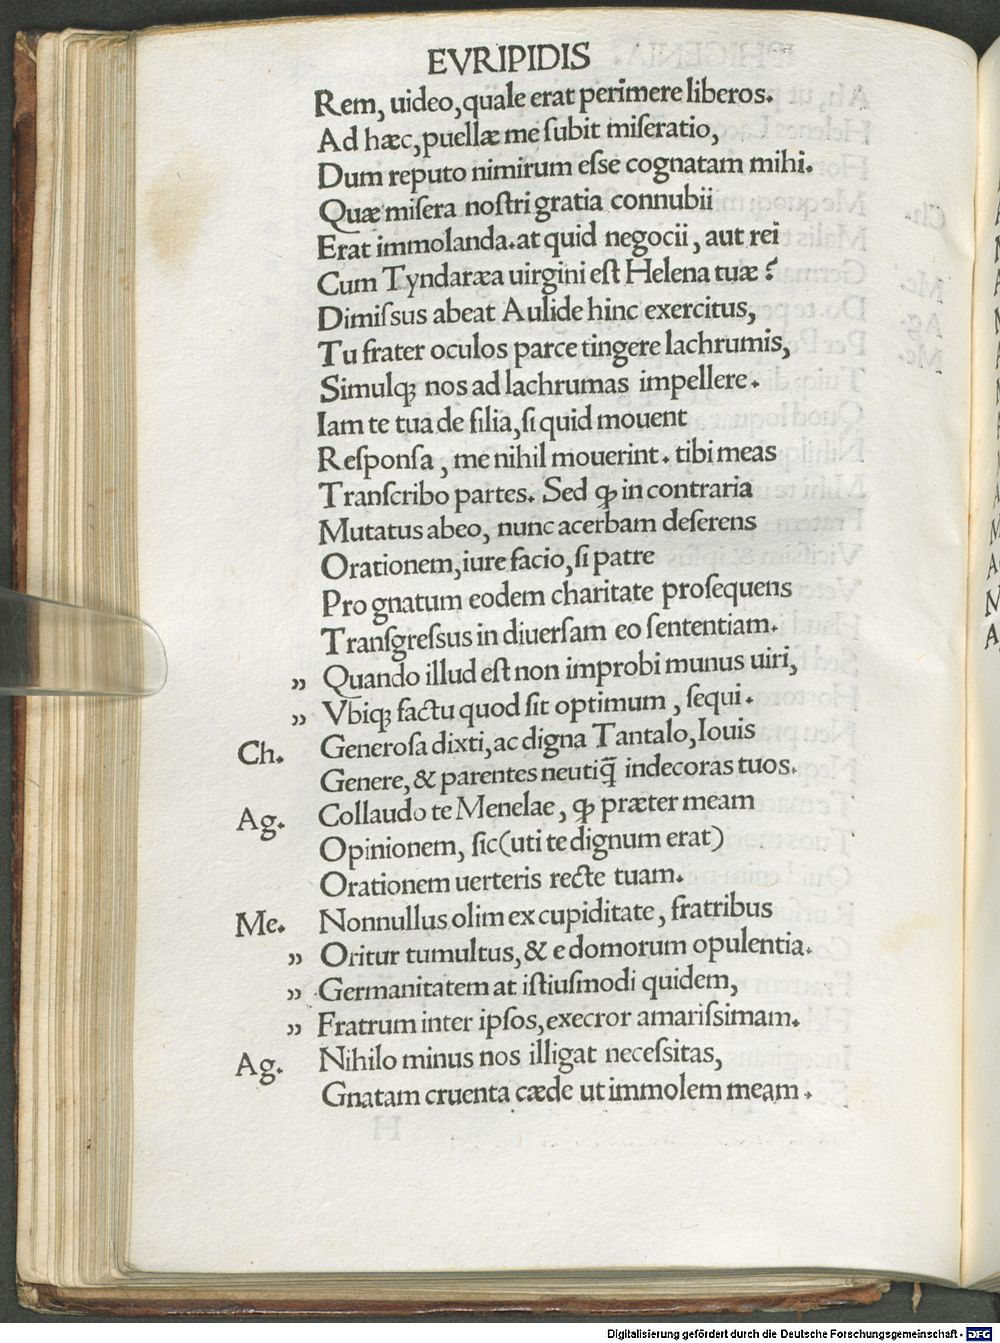 EVRIPIDIS
Rem, uideo, quale erat perimere liberos.
Ad hæc, puellæ me ſubit miſeratio,
Dum reputo nimirum eſse cognatam mihi.
Quæ miſera noſtri gratia connubii
Erat immolanda. at quid negocii, aut rei
Cum Tyndaræa uirgini eſt Helena tuæ?
Dimiſsus abeat Aulide hinc exercitus,
Tu frater oculos parce tingere lachrumis,
Simulq; nos ad lachrumas impellere.
Iam te tua de filia, ſi quid mouent
Reſponſa, me nihil mouerint. tibi meas
Tranſcribo partes. Sed ꝙ in contraria
Mutatus abeo, nunc acerbam deſerens
Orationem, iure facio, ſi patre
Pro gnatum eodem charitate proſequens
Tranſgreſsus in diuerſam eo ſententiam.
„ Quando illud eſt non improbi munus uiri,
„ Vbiq; factu quod ſit optimum, ſequi.
Ch. Generoſa dixti, ac digna Tantalo, Iouis
Genere, & parentes neutiq̃ indecoras tuos.
Ag. Collaudo te Menelae, ꝙ præter meam
Opinionem, ſic (uti te dignum erat)
Orationem uerteris recte tuam.
Me. Nonnullus olim ex cupiditate, fratribus
„ Oritur tumultus, & e domorum opulentia.
„ Germanitatem at iſtiuſmodi quidem,
„ Fratrum inter ipſos, execror amariſsimam.
Ag. Nihilo minus nos illigat neceſsitas,
Gnatam cruenta cæde ut immolem meam.
Digitalisierung gefördert durch die Deutsche Forschungsgemeinschaft - DFG